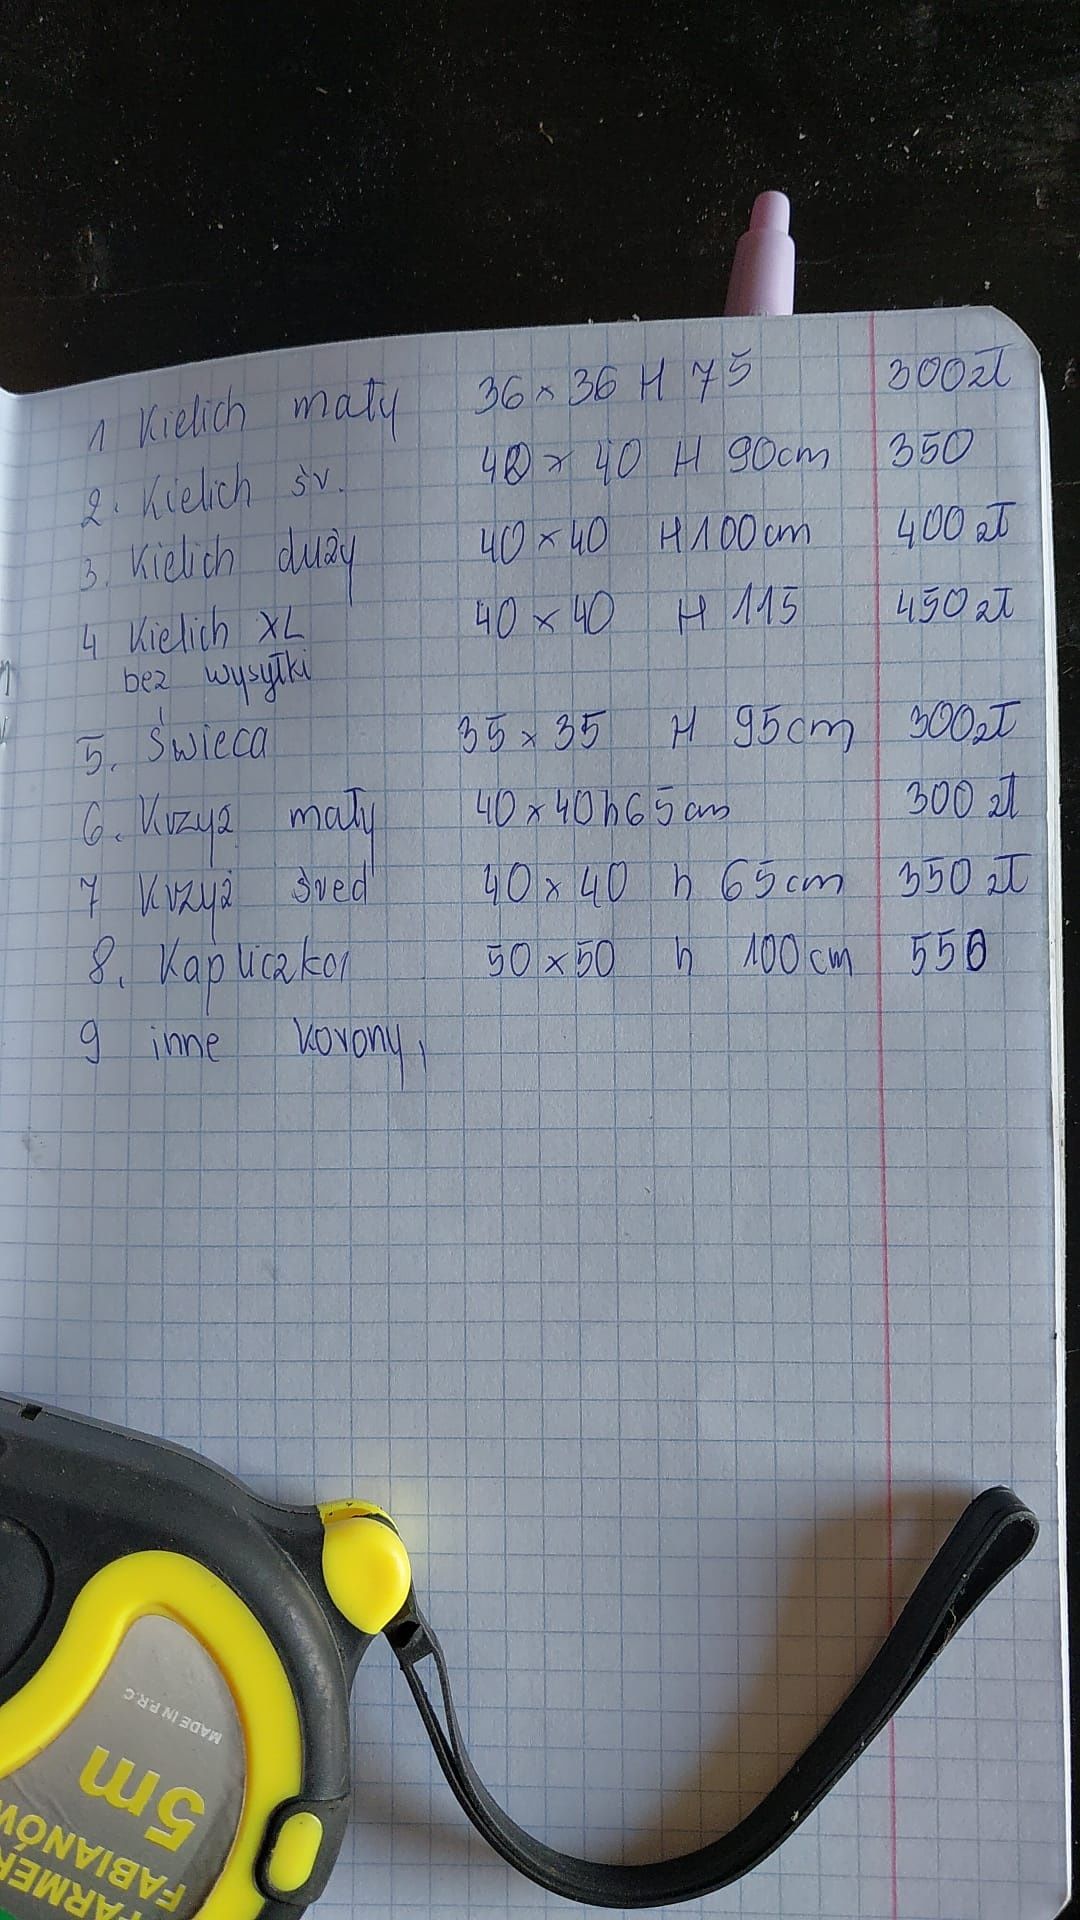 1 Kielich mały 36 x 36 H 75 300zł
2. Kielich śr. 40 x 40 H 90cm 350
3. Kielich duży 40 x 40 H 100cm 400 zł
4 Kielich XL 40 x 40 H 115 450 zł
bez wysyłki
5. Świeca 35 x 35 H 95cm 300zł
6. Krzyż mały 40 x 40 h 65 cm 300 zł
7 Krzyż śred 40 x 40 h 65cm 350 zł
8. Kapliczka 50 x 50 h 100cm 550
9 inne korony,
MADE IN P.R.C
5m
FABIANÓW
FARMER